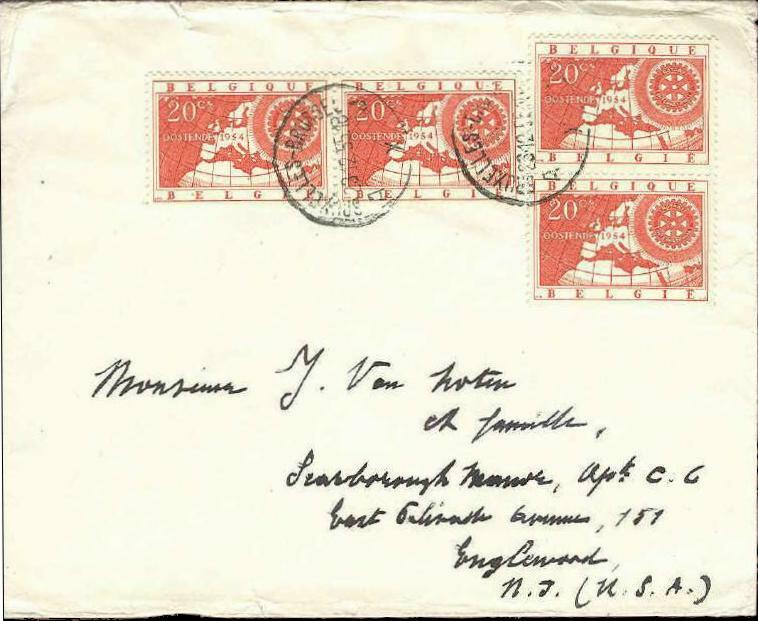 BELGIQUE
20cs
OOSTENDE 1954
BELG
BELGIQUE
20cs
OOSTENDE 1954
BELGI
BELGIQUE
20cs
OOSTENDE 1954
BELGIË
BELGIQUE
20cs
OOSTENDE 1954
BELGIË
Monsieur J. Van Noten
et famille,
Scarborough Manor, Apt. C. 6
East Palisade Avenue, 151
Englewood,
N.J. (U.S.A.)